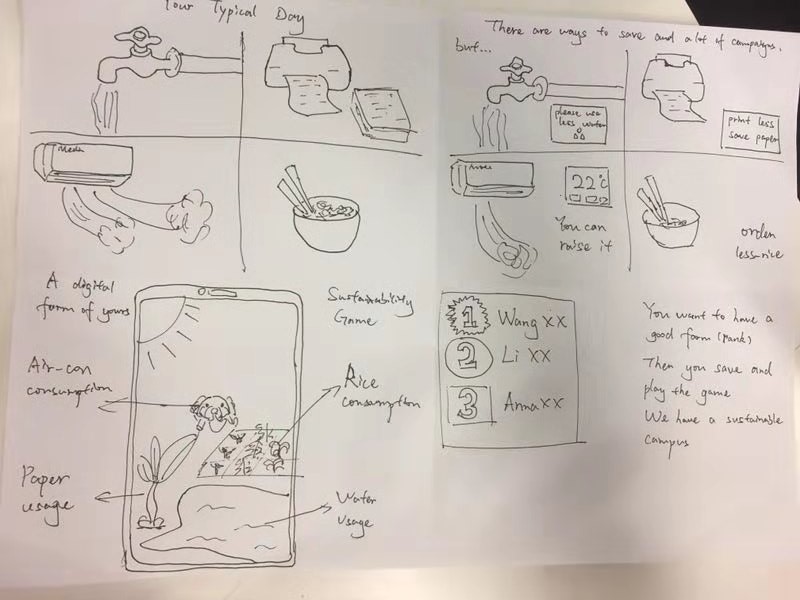 Your Typical Day
Media
There are ways to save and a lot of campaigns,
but...
please use
less water
print less
save paper
22°C
You can
raise it
order
less rice
A digital
form of yours
Sustainability
Game
Air-con
consumption
Rice
consumption
Paper
usage
Water
usage
1 Wang XX
2 Li XX
3 Anna XX
You want to have a
good farm (rank)
Then you save and
play the game
We have a sustainable
campus